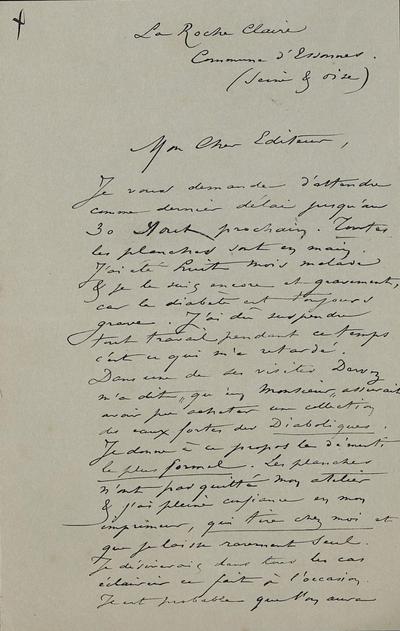 La Roche Claire
Commune d'Essonnes.
(Seine & Oise)
Mon Cher Editeur,
Je vous demande d'attendre
comme dernier délai jusqu'au
30 Aout prochain. Toutes
les planches sont en main
J'ai été huit mois malade
& je le suis encore et gravement,
car le diabète est toujours
grave. J'ai dû suspendre
tout travail pendant ce temps
c'est ce qui m'a retardé.
Dans une de ses visites
m'a dit "qu'un Monsieur" assurait
avoir pu acheter une collection
des eaux fortes des Diaboliques.
Je donne à ce propos le démenti
le plus formel. Les planches
n'ont pas quitté mon atelier
& j'ai pleine confiance en mon
imprimeur, qui tire chez moi et
que je laisse rarement seul.
Je désirerais dans tous les cas
éclaircir ce fait à l'occasion.
Il est probable que l'on aura